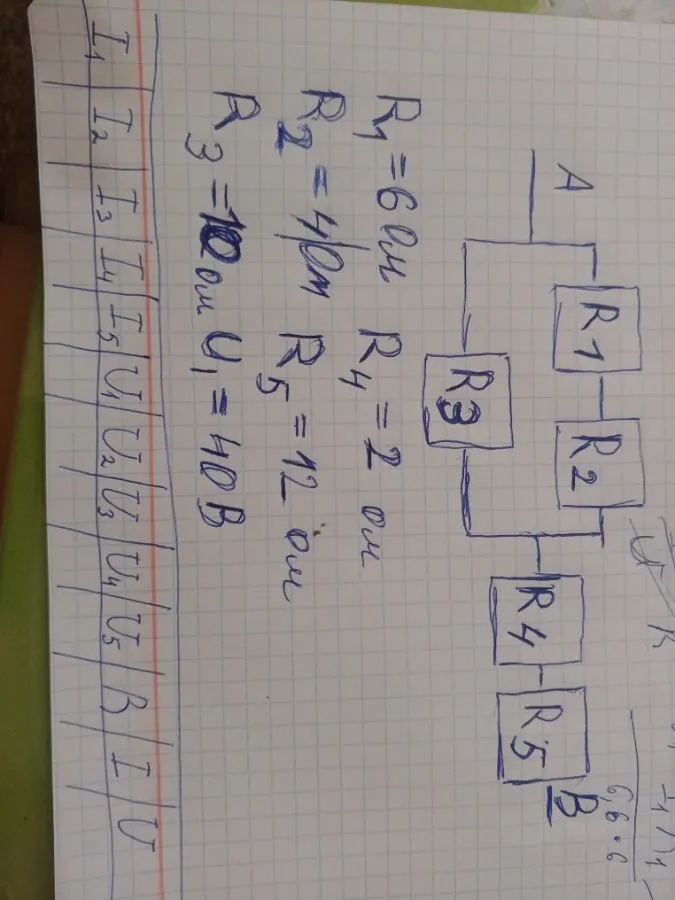 A
R1
R2
R3
R4
R5
B
R1 = 6 Ом
R4 = 2 ом
R2 = 4 Ом
R5 = 12 ом
R3 = 10 ом U1 = 40 В
I1 I2 I3 I4 I5 U1 U2 U3 U4 U5 B I U
6,6 · 6